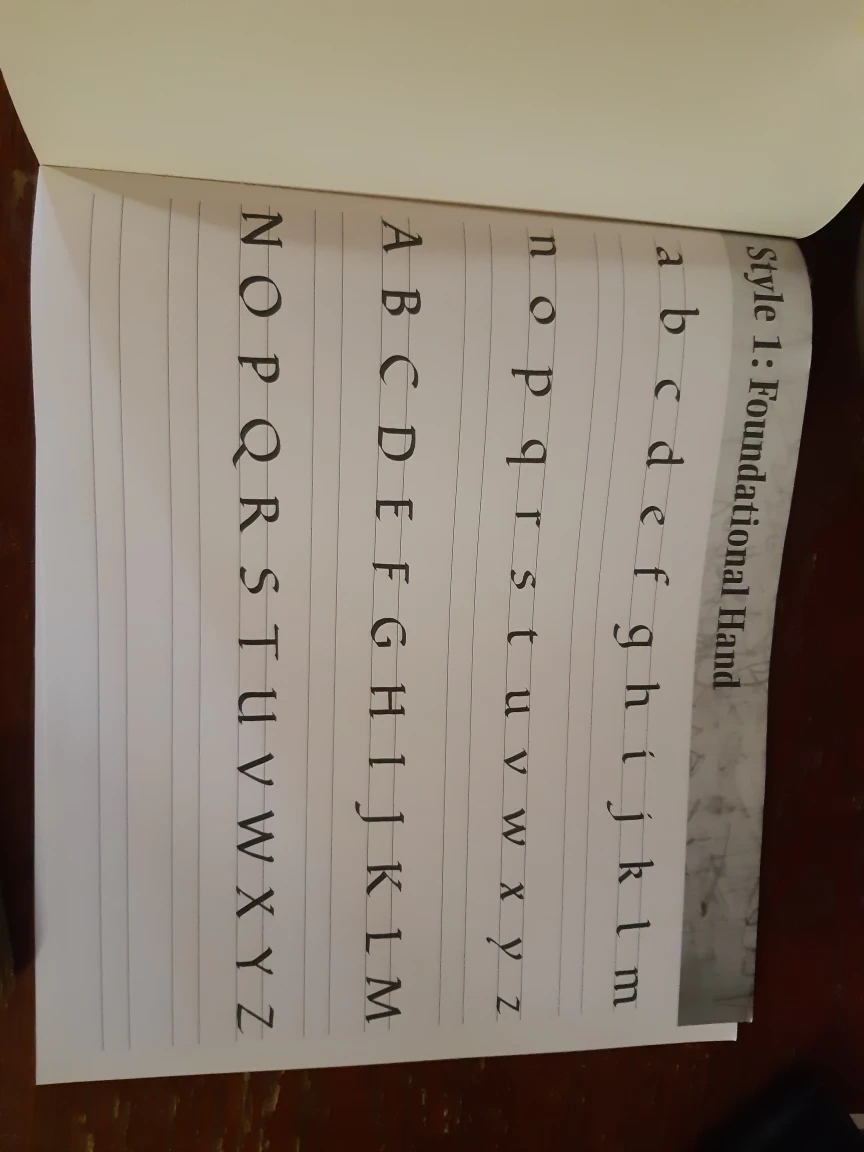 Style 1: Foundational Hand
a b c d e f g h i j k l m
n o p q r s t u v w x y z
A B C D E F G H I J K L M
N O P Q R S T U V W X Y Z